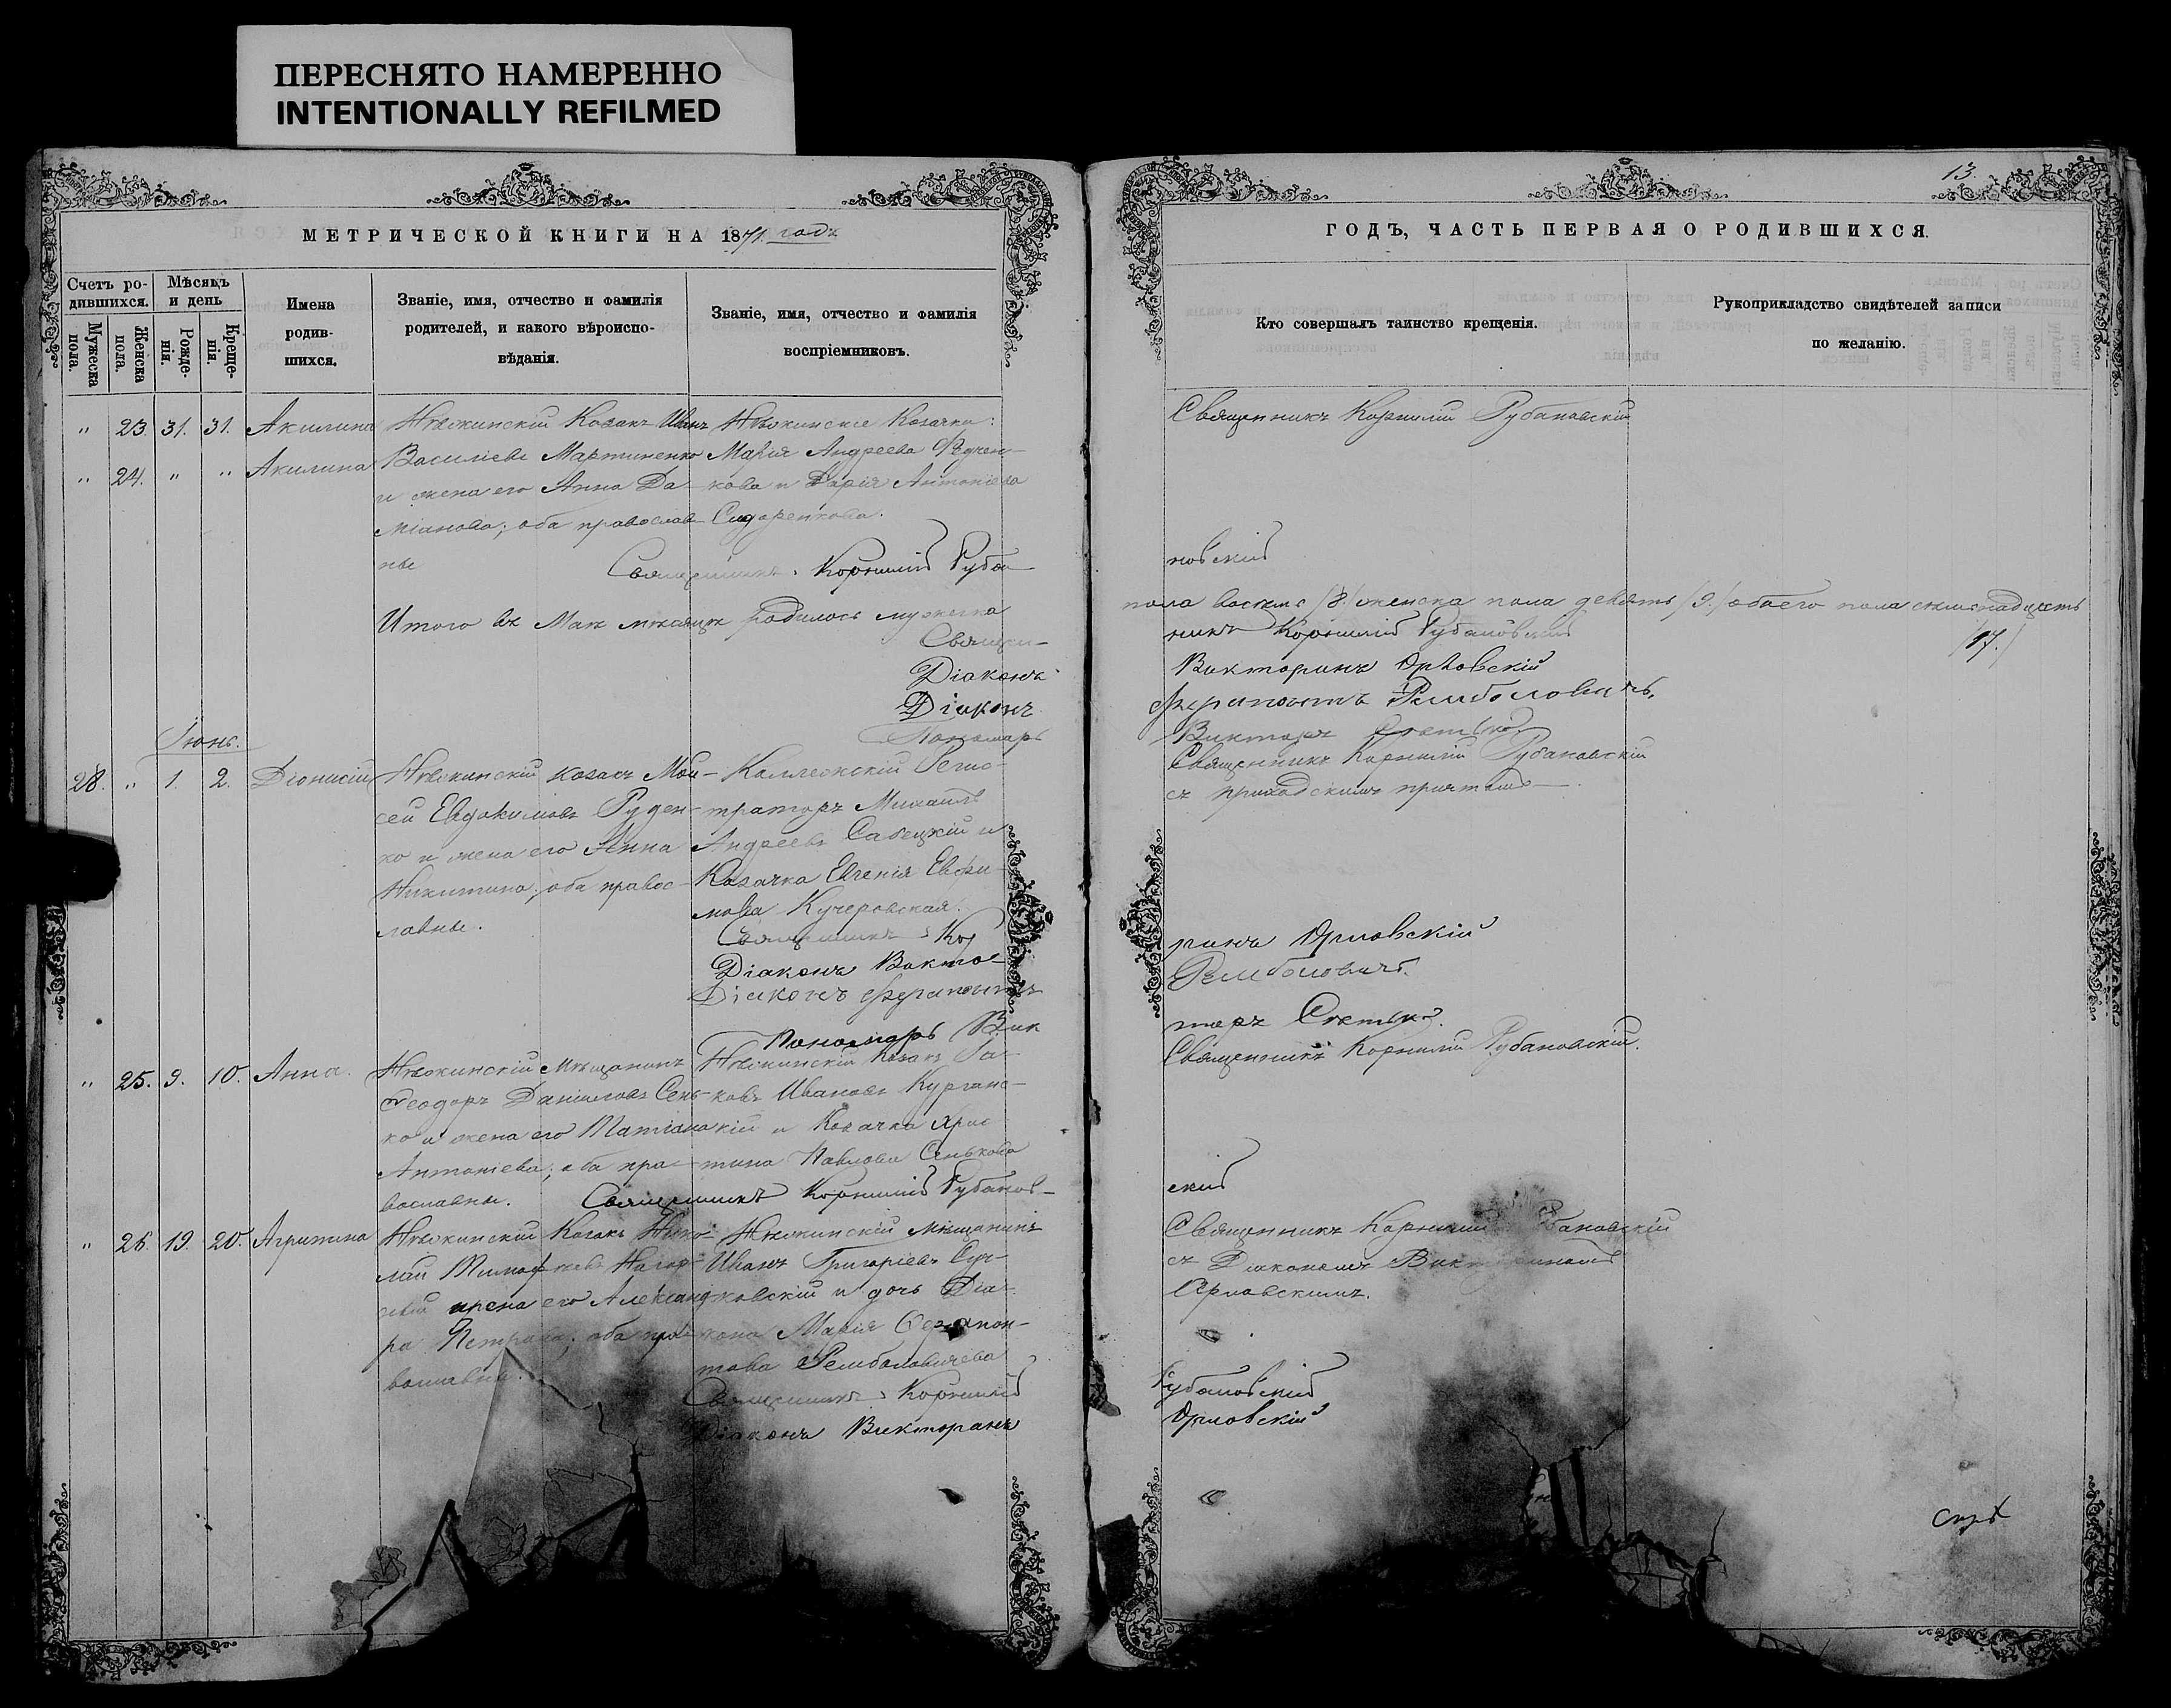 ПЕРЕСНЯТО НАМЕРЕННО
INTENTIONALLY REFILMED
МЕТРИЧЕСКОЙ КНИГИ НА 1871. годъ
Счетъ родившихся.
Мужеска пола.
Женска пола.
Мѣсяцъ и день
Рожденія.
Крещенія.
Имена родившихся.
Званіе, имя, отчество и фамилія
родителей, и какого вѣроиспо-
вѣданія.
Званіе, имя, отчество и фамилія
воспріемниковъ.
" 23. 31. 31. Акилина
" 24. " " Акилина
Нѣжинскій Козакъ Иванъ
Васильевъ Мартиненко
и жена его Анна Да-
міанова; оба православ-
ны
Нѣжинскіе Козачки:
Марія Андреева Федчен-
кова и Дарія Антоніева
Сидоренкова.
Священникъ Корнилій Руба-
Итого въ Маѣ мѣсяцѣ родилось мужеска
Священ-
Діаконъ
Діаконъ
Пономарь
Іюнь.
28. " 1. 2. Діонисій
Нѣжинскій козакъ Мои-
сей Евдокимовъ Руден-
ко и жена его Анна
Никитина; оба правос-
лавны.
Коллежскій Регис-
траторъ Михаилъ
Андреевъ Савецкій и
Козачка Евгенія Евфи-
мова Кучеровская.
Священникъ Кор
Діаконъ Викто-
Діаконъ Ферапонтъ
Пономарь Вик
" 25. 9. 10. Анна.
Нѣжинскій Мѣщанинъ
Ѳеодоръ Даніиловъ Сень-
ко и жена его Татіана
Антоніева; оба пра-
вославны.
Нѣжинскій Козакъ Іа-
ковъ Ивановъ Курганс-
кій и Козачка Хрис-
тина Павлова Сенькова
Священникъ Корнилій Рубанов-
" 26. 19. 20. Агрипина
Нѣжинскій Козакъ Нико-
лай Тимофѣевъ
жена его Александ-
ра Петрова; оба пра-
вославны.
Нѣжинскій Мѣщанинъ
Иванъ Григоріевъ
и дочь Діа-
кона Марія Ферапон-
това Рембаловичева
Священникъ Корнилій
Діаконъ Викторинъ
13.
ГОДЪ, ЧАСТЬ ПЕРВАЯ О РОДИВШИХСЯ.
Кто совершалъ таинство крещенія.
Рукоприкладство свидѣтелей записи
по желанію.
Священникъ Корнилій Рубановскій
новскій
пола восемь /8./ женска пола девять /9./ обоего пола семьнадцать
/17./
никъ Корнилій Рубановскій
Викторинъ Орловскій
Ферапонтъ Рембаловичъ.
Викторъ
Священникъ Корнилій Рубановскій
съ приходскимъ причтомъ
ринъ Орловскій
Рембаловичъ.
торъ
Священникъ Корнилій Рубановскій.
скій
Священникъ Корнилій Рубановскій
съ Діакономъ Викториномъ
Орловскимъ.
Рубановскій
Орловскій